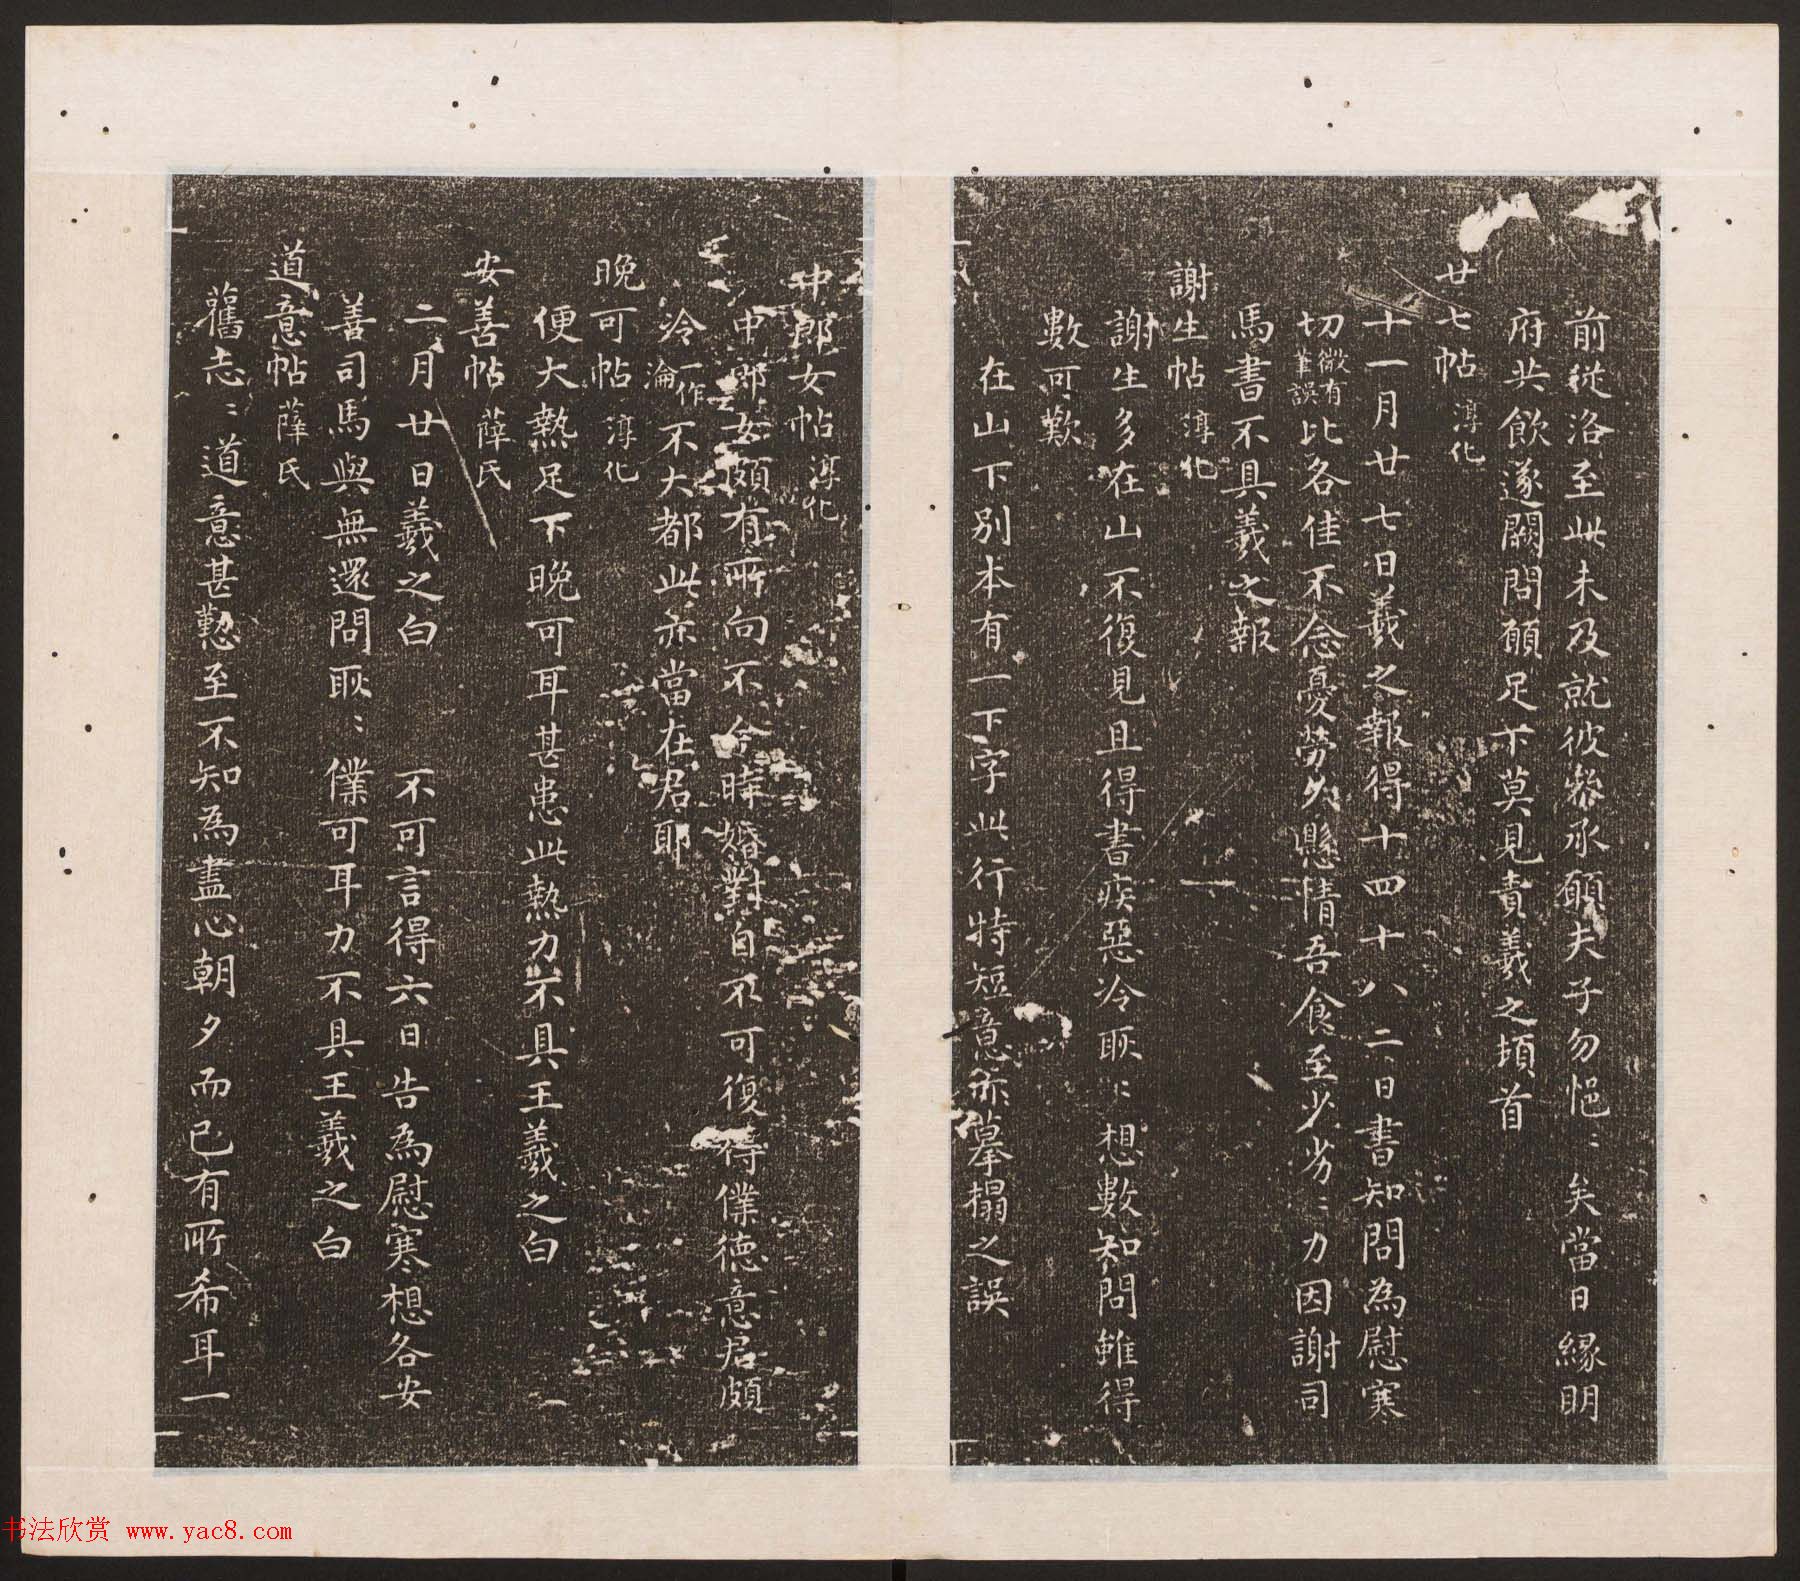 前從洛至此未及就彼參承願夫子勿悒〻矣當日緣明
府共飲遂闕問願足下莫見責羲之頓首
廿七帖 淳化
十一月廿七日羲之報得十四十八二日書知問為慰寒
切微有筆誤比各佳不念憂勞久懸情吾食至少劣〻力因謝司
馬書不具羲之報
謝生帖 淳化
謝生多在山不復見且得書疾惡冷耿〻想數知問雖得
數可歎
在山下別本有一下字此行特短意亦摹搨之誤
中郎女帖 淳化
中郎女頗有所向不今時婚對自不可復得僕德意君頗
冷一作淪不大都此亦當在君耶
晚可帖 淳化
便大熱足下晚可耳甚患此熱力不具王羲之白
安善帖 薛氏
二月廿日羲之白 不可言得六日告為慰寒想各安
善司馬與無還問耿〻僕可耳力不具王羲之白
道意帖 薛氏
舊志〻道意甚懃至不知為盡心朝夕而已有所希耳一
书法欣赏 www.yac8.com